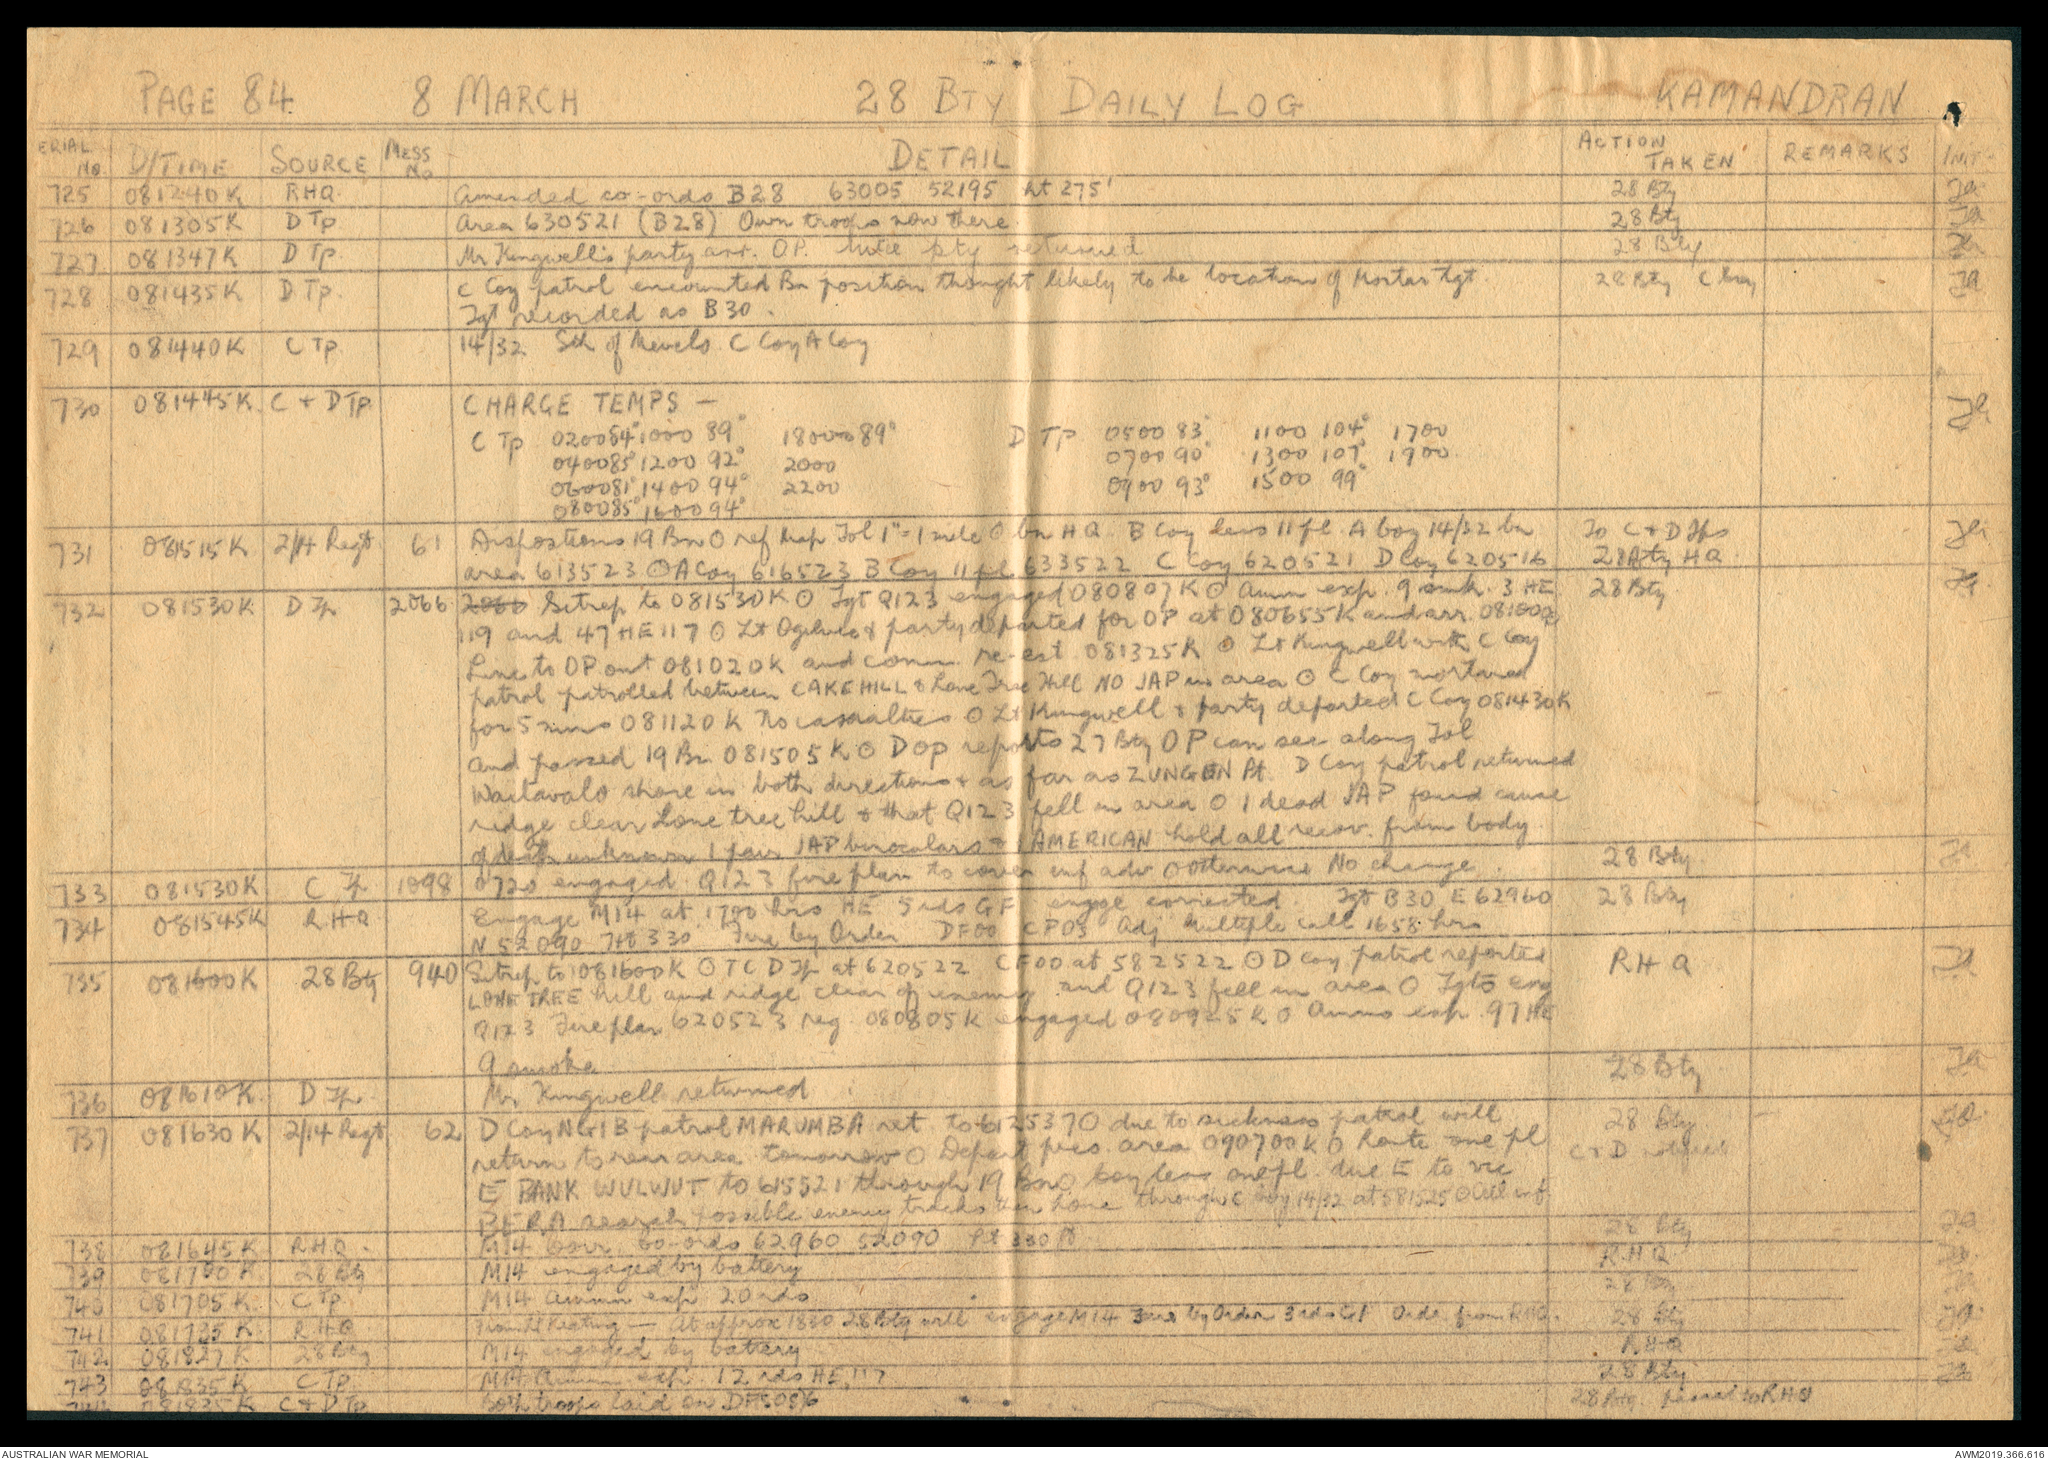 PAGE 84 8 MARCH 28 BTY DAILY LOG KAMANDRAN
ERIAL No. D/TIME SOURCE MESS No DETAIL ACTION TAKEN REMARKS INIT
725 081240K RHQ Amended co-ords B28 63005 52195 ht 275' 28 Bty
726 081305K D Tp Area 630521 (B28) Own troops now there. 28 Bty
727 081347K D Tp. Mr Kingwell's party arr. O.P. pty returned 28 Bty
728 081435K D Tp. C Coy patrol encountered Bn position thought likely to be location of Mortar Tgt. 28 Bty
Tgt recorded as B30.
729 081440K C Tp 14/32 Sth of Mevelo. C Coy A Coy
730 081445K C + D Tp. CHARGE TEMPS —
C Tp 0200 84° 1000 89° 1800 89° D Tp 0500 83° 1100 104° 1700
0400 85° 1200 92° 2000 0700 90° 1300 107° 1900
0600 81° 1400 94° 2200 0900 93° 1500 99°
0800 85° 1600 94°
731 081515K 2/14 Regt 61 Dispositions 19 Bn O ref Map Tol 1"=1 mile O bn HQ. B Coy less 11 pl. A Coy 14/32 bn To C + D Tps
area 613523 O A Coy 616523 B Coy 11 pl 633522 C Coy 620521 D Coy 620516 28 Bty HQ
732 081530K D Tp 2066 Sitrep to 081530K O Tgt Q123 engaged 080807K O Amm exp. 9 smk. 3 HE 28 Bty
119 and 47 HE 117 O Lt Ogilvie & party departed for OP at 080655K and arr.
Line to OP out 081020K and comm. re-est. 081325K O Lt Kingwell with C Coy
patrol patrolled between CAKE HILL & Lone Tree Hill NO JAP in area O C Coy mortared
for 5 mins 081120K No casualties O Lt Kingwell & party departed C Coy 081430K
and passed 19 Bn 081505K O D OP reports 27 Bty OP can see along Tol
Waitavalo shore in both directions & as far as ZUNGEN Pt. D Coy patrol returned
ridge clear Lone tree hill & that Q123 fell in area O 1 dead JAP found cause
of death unknown 1 pair JAP binoculars + 1 AMERICAN hold all recov. from body.
733 081530K C Tp 1098 0720 engaged Q123 fire plan to cover inf adv O Otherwise No change. 28 Bty
734 081545K RHQ Engage M14 at 1700 hrs HE 5 rds GF engage corrected Tgt B30 E 62960 28 Bty
N 52090 Ht 330 Fire by Order DF00 CP03 Adj Multiple call 1658 hrs
735 081600K 28 Bty 940 Sitrep to 081600K O TC D Tp at 620522 CF00 at 582522 O D Coy patrol reported RHQ
LONE TREE hill and ridge clear of enemy and Q123 fell in area O Tgts eng
Q123 Fire plan 620523 reg. 080805K engaged 080925K O Ammo exp. 97 HE
9 smoke
736 081610K D Tp. Mr. Kingwell returned 28 Bty
737 081630K 2/14 Regt 62 D Coy NGIB patrol MARUMBA ret to 612537 O due to sickness patrol will 28 Bty
return to rear area tomorrow O Depart pres. area 090700K O Route one pl C + D
E BANK WULWUT to 615521 through 19 Bn O Coy less one pl. due E to vic
BERA search possible enemy tracks then home through C Coy 14/32 at 581525 O All inf
738 081645K RHQ. M14 corr. co-ords 62960 52090 330 ft 28 Bty
739 081700K 28 Bty M14 engaged by battery RHQ
740 081705K C Tp M14 ammn exp 20 rds 28 Bty
741 081735K RHQ From Lt Keating — At approx 1830 28 Bty will engage M14 Fire by Order 3 rds GF Order from RHQ. 28 Bty
742 081827K 28 Bty M14 engaged by battery RHQ
743 081835K C Tp. M14 Ammn exp. 12 rds HE, 117 28 Bty
744 081835K C + D Tp Both troops laid on 28 Bty. passed to RHQ
AUSTRALIAN WAR MEMORIAL AWM2019.366.616